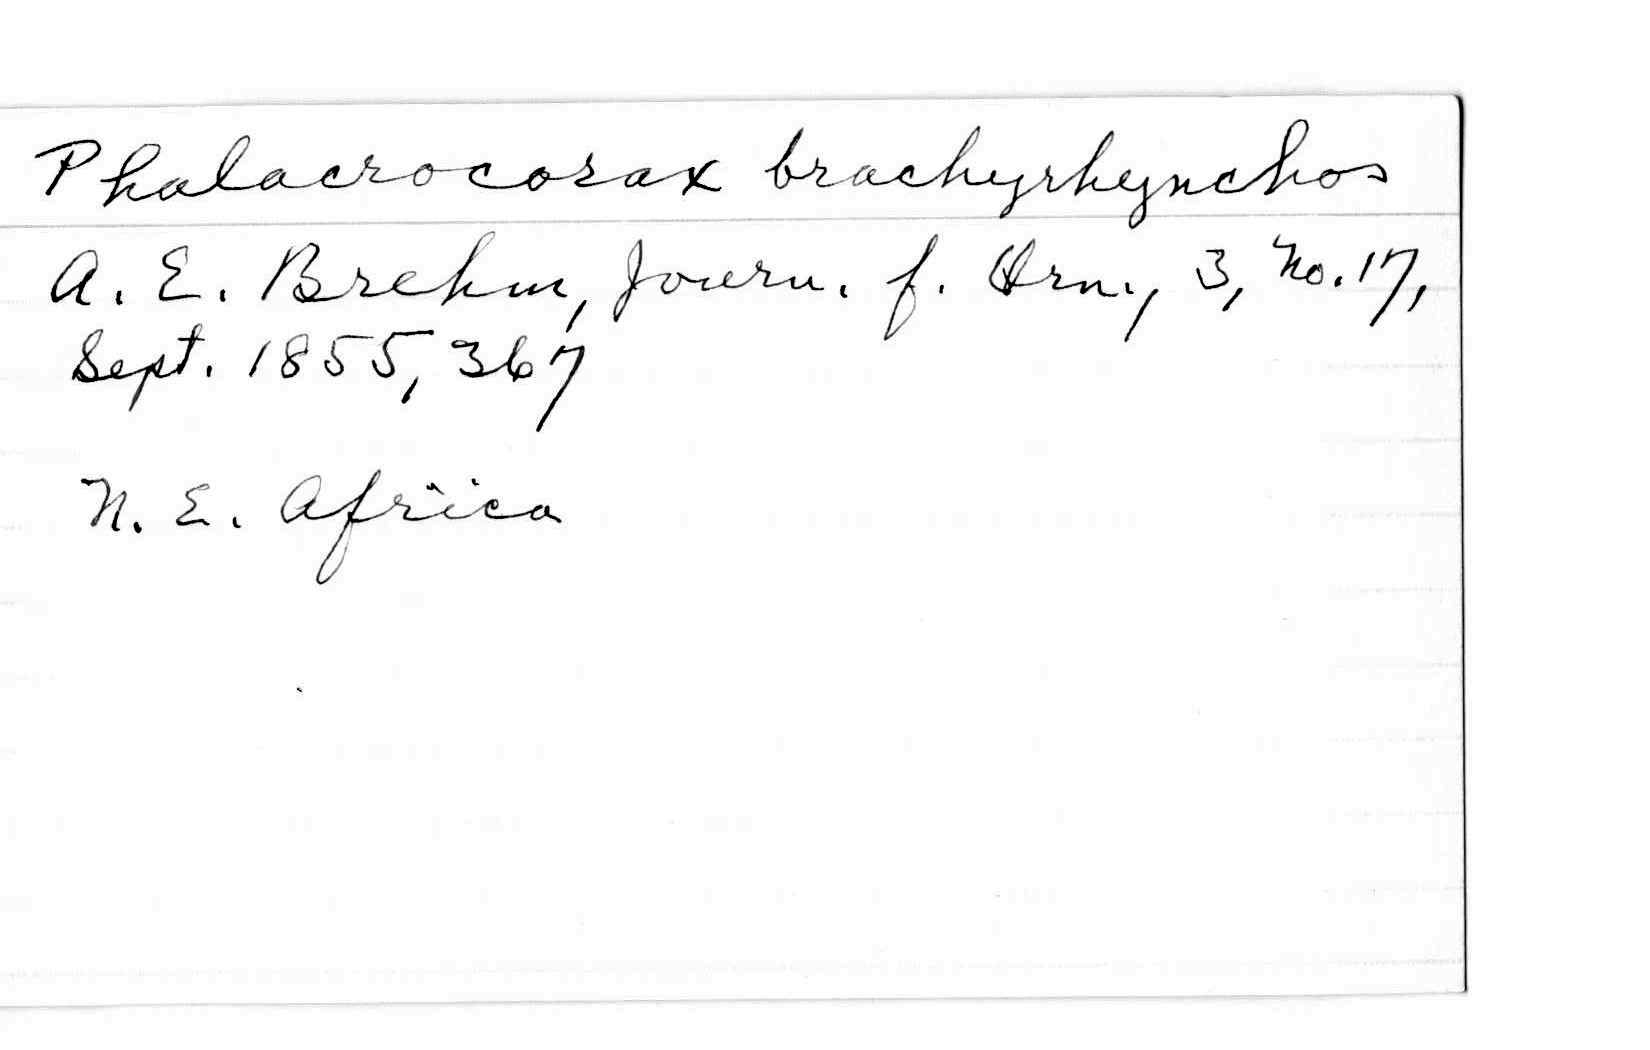 Phalacrocorax brachyrhynchos
A. E. Brehm, Journ. f. Orn., 3, No. 17,
Sept. 1855, 367
N. E. Africa